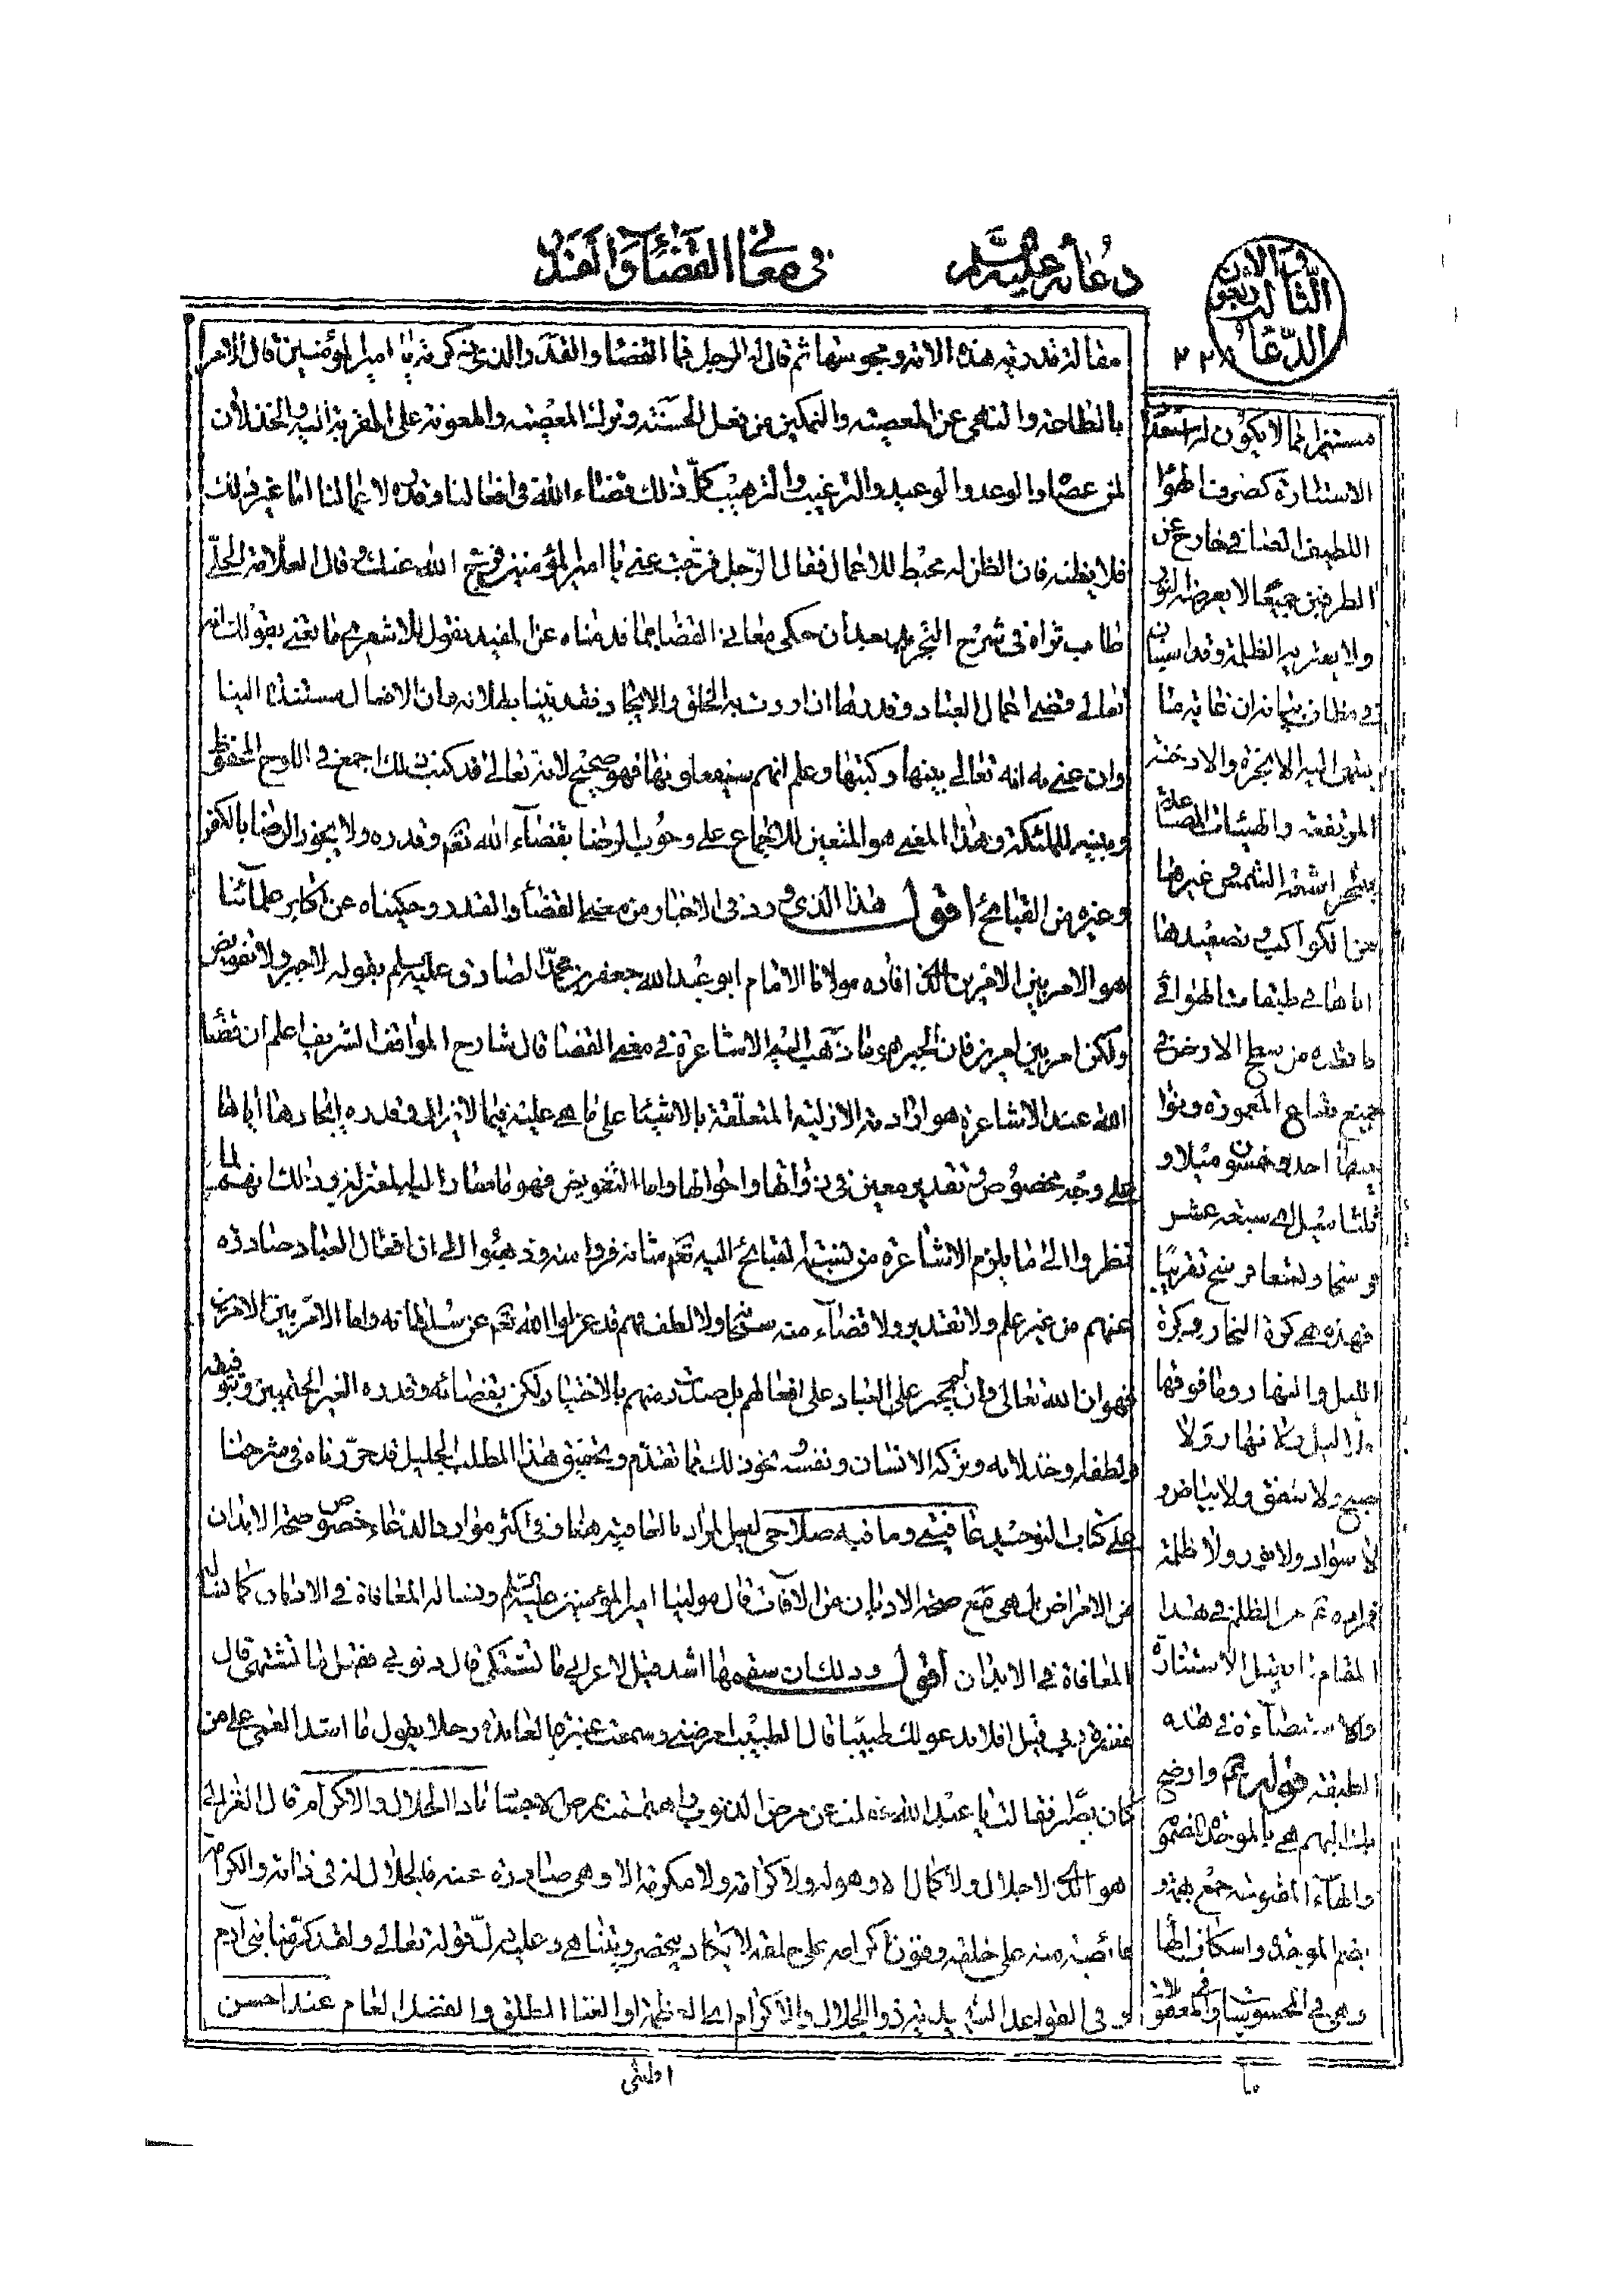 دعائه عليه السلم
في معاني القضاء والقدر
الدعاء الثالث والاربعون
مقالة قدرية هذه الامة ومجوسها ثم قال له الرجل فما القضاء والقدر الذي ذكرته يا امير المؤمنين قال الامر
بالطاعة والنهي عن المعصية والتمكين من فعل الحسنة وترك المعصية والمعونة على القربة اليه والخذلان
لمن عصاه والوعد والوعيد والترغيب والترهيب كل ذلك قضاء الله في افعالنا وقدره لاعمالنا اما غير ذلك
فلا يظنه فان الظن له محبط للاعمال فقال الرجل فرجت عني يا امير المؤمنين فرج الله عنك وقال العلامة الحلي
طاب ثراه في شرح التجريد بعد ان حكى معاني القضا بما قدمناه عن المفيد نقول للاشعري ما تعني بقولك انه
تعالى قضى اعمال العباد وقدرها ان اردت به الخلق والايجاد فقد بينا بطلانه وان الافعال مستندة الينا
وان عنى به انه تعالى بينها وكتبها وعلم انهم سيفعلونها فهو صحيح لانه تعالى قد كتب ذلك اجمع في اللوح المحفوظ
وبينه للملئكة وهذا المعنى هو المتعين للاجماع على وجوب الرضا بقضاء الله تعم وقدره ولا يجوز الرضا بالكفر
وغيره من القبائح اقول هذا الذي ورد في الاخبار من معنى القضاء والقدر وحكيناه عن اكابر علمائنا
هو الامر بين الامرين الذي افاده مولانا الامام ابو عبد الله جعفر بن محمد الصادق عليه السلم بقوله لا جبر ولا تفويض
ولكن امر بين امرين فان الجبر هو ما ذهب اليه الاشاعرة في معنى القضا قال شارح المواقف الشريف اعلم ان قضاء
الله عند الاشاعرة هو ارادته الازلية المتعلقة بالاشياء على ما هي عليه فيما لا يزال وقدره ايجادها اياها
على وجه مخصوص وتقدير معين في ذواتها واحوالها واما التفويض فهو ما صار اليه المعتزلة وذلك انهم لما
نظروا الى ما يلزم الاشاعرة من نسبته القبائح اليه تعم شانه فروا منه وذهبوا الى ان افعال العباد صادرة
عنهم من غير علم ولا تقدير ولا قضاء منه سبحانه ولا لطف فهم قد عزلوا الله تعم عن سلطانه واما الامر بين الامرين
فهو ان الله تعالى وان لم يجبر على العباد على افعالهم بل صدرت منهم بالاختيار ولكن بقضائه وقدره الغير الحتميين وتوفيقه
ولطفه وخذلانه وتركه الانسان ونفسه ونحو ذلك مما تقدم وتحقيق هذا المطلب الجليل قد حررناه في شرحنا
على كتاب التوحيد عافيتي وما فيه صلاحي لعل المراد بالعافية هنا وفي اكثر موارد الدعاء خصوص صحة الابدان
من الامراض بل هي مع صحة الاديان من الافات قال مولينا امير المؤمنين عليه السلم ونساله المعافاة في الاديان كما نساله
المعافاة في الابدان اقول وذلك ان سقمها اشد قيل لاعرابي ما تشتكي قال ذنوبي فقيل ما تشتهي قال
مغفرة ربي قيل افلا ندعو لك طبيبا قال الطبيب امرضني وسمعت عنيزة العابدة رجلا يقول ما اشد العمى على من
كان بصيرا فقالت يا عبد الله غفلت عن مرض الذنوب واهتممت بمرض الاجساد يا ذا الجلال والاكرام قال الغزالي
هو الذي لا جلال ولا كمال الا وهو له ولا كرامة ولا مكرمة الا وهي صادرة عنه فالجلال له في ذاته والكرامة
فائضة منه على خلقه وفنون اكرامه على خلقه لا يكاد ينحصر ويتناهى وعليه دل قوله تعالى ولقد كرمنا بني آدم
و في القواعد الشهيدية ذو الجلال والاكرام اي العظمة او الغناء المطلق والفضل العام عند احسن
مستنير فما لا يكون له استعداد
الاستنارة كصرف الهواء
اللطيف الصافي خارج عن
الطرفين جميعا لا يعرضه النور
ولا يعتريه الظلمة وقد استبان
في مظان بيانه ان غاية ما
ينتهي اليه الابخرة والادخنة
المرتفعة والهيئات المتصاعدة
بتسخير اشعة الشمس وغيرها
من الكواكب وتصعيدها
اياها في طبقات الهوائي
ما بعده من سطح الارض في
جميع بقاع المعمورة
احد وخمسون ميلا و
ميل هي سبعة عشر
فرسخا وتسعا فرسخ تقريبا
فهذه هي كرة البخار وكرة
الليل والنهار وما فوقها
لا ليل ولا نهار ولا
صبح ولا شفق ولا بياض و
لا سواد ولا نور ولا ظلمة
فمراده عم من الظلمة في هذا
المقام ما يقبل الاستنارة
والاستضاءة في هذه
الطبقة قوله عم وارضح
البهم هي بالموحدة المضمومة
والهاء المفتوحة جمع بهمة و
بضم الموحدة واسكان الهاء
وهي في المحسوسات والمعقولات
او لمن